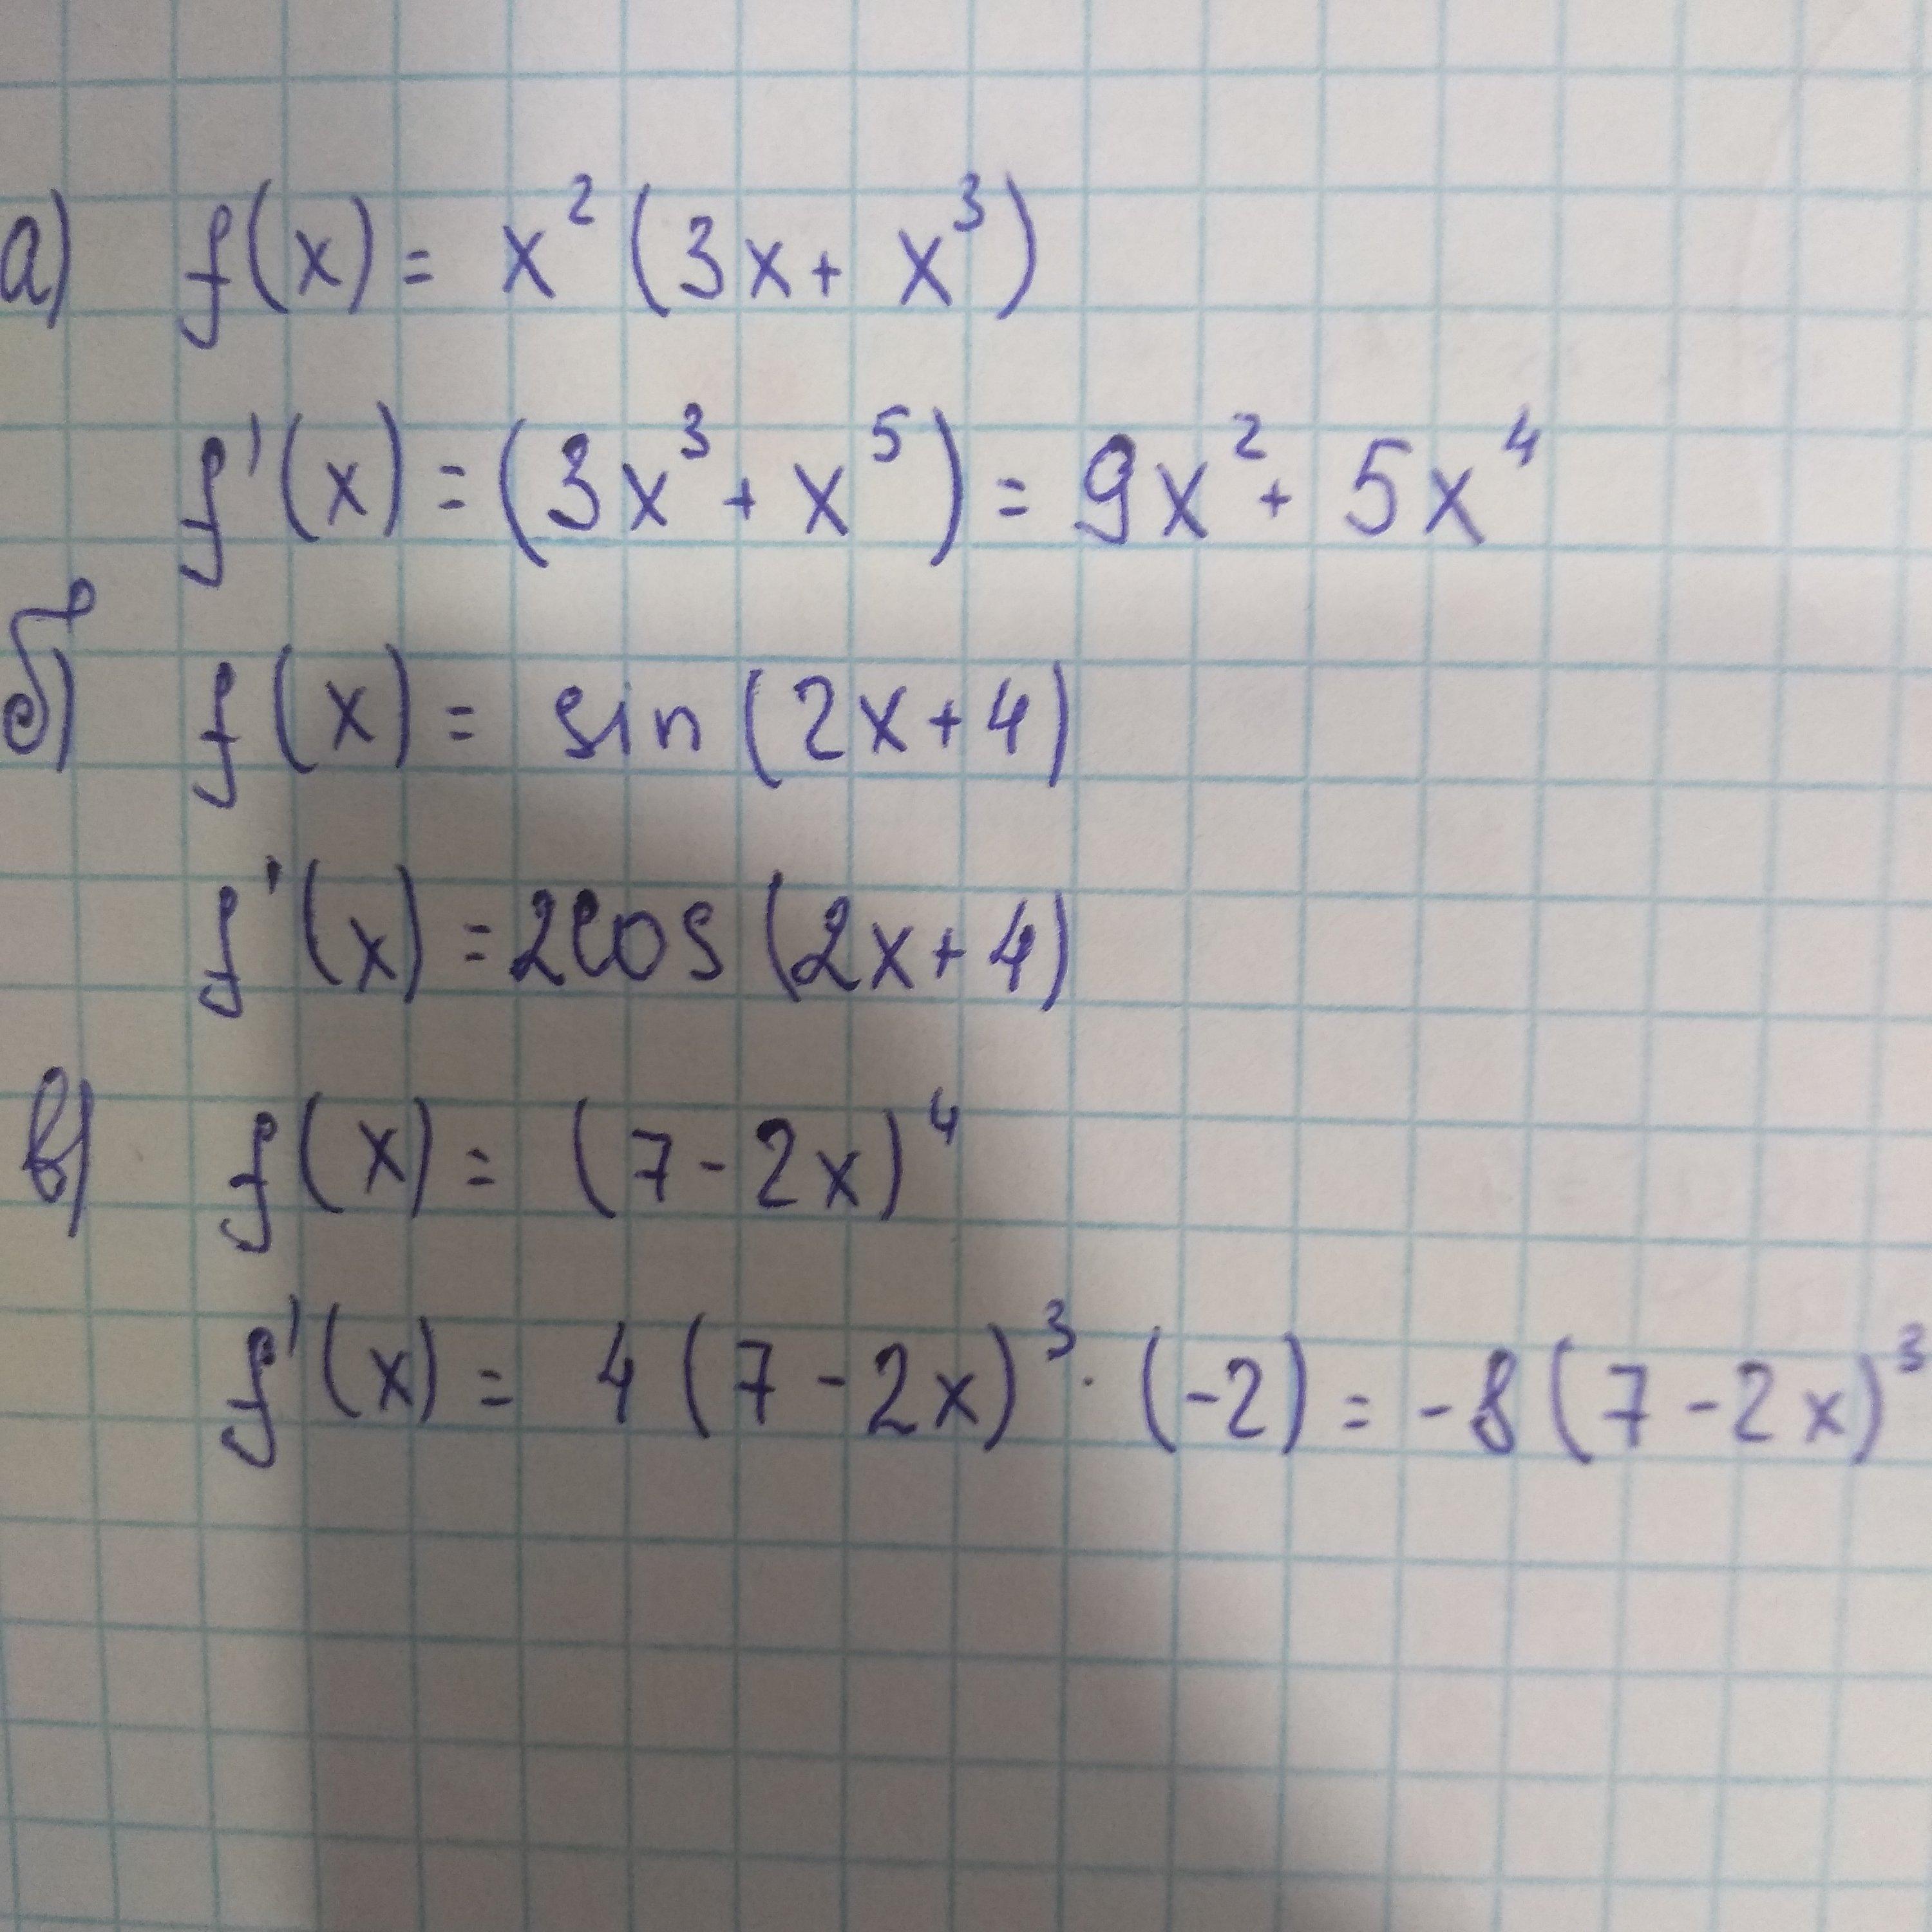 а) f(x) = x² (3x + x³)
f'(x) = (3x³ + x⁵) = 9x² + 5x⁴
б) f(x) = sin (2x+4)
f'(x) = 2cos (2x+4)
в) f(x) = (7 - 2x)⁴
f'(x) = 4 (7 - 2x)³ · (-2) = -8 (7 - 2x)³